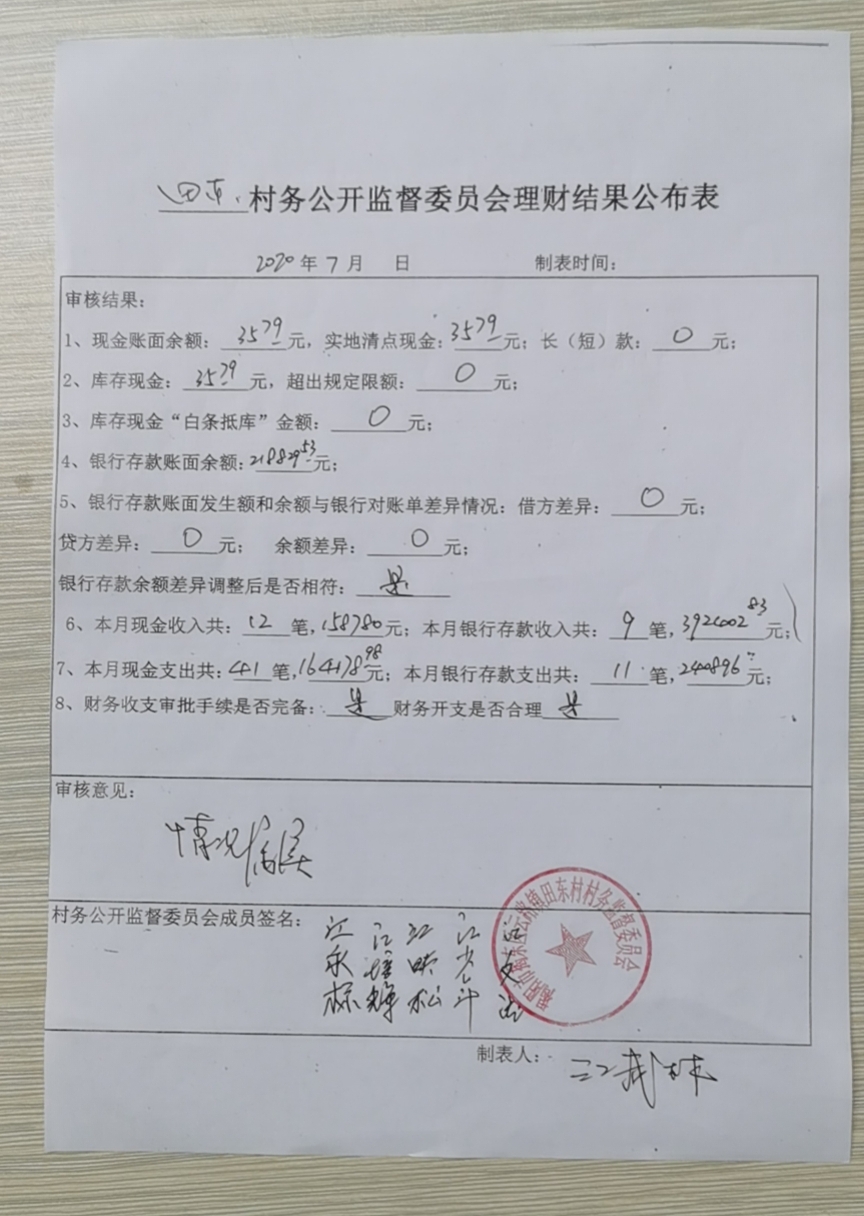 田东 村务公开监督委员会理财结果公布表
2020年7月 日 制表时间：
审核结果：
1、现金账面余额：3579元，实地清点现金：3579元；长（短）款：0元；
2、库存现金：3579元，超出规定限额：0元；
3、库存现金“白条抵库”金额：0元；
4、银行存款账面余额：元；
5、银行存款账面发生额和余额与银行对账单差异情况：借方差异：0元；
贷方差异：0元； 余额差异：0元；
银行存款余额差异调整后是否相符：是
6、本月现金收入共：12笔，158780元；本月银行存款收入共：9笔，元；
7、本月现金支出共：41笔，元；本月银行存款支出共：11笔，元；
8、财务收支审批手续是否完备：是 财务开支是否合理 是
审核意见：
情况属实
村务公开监督委员会成员签名：
田东村村务监督委员会
制表人：